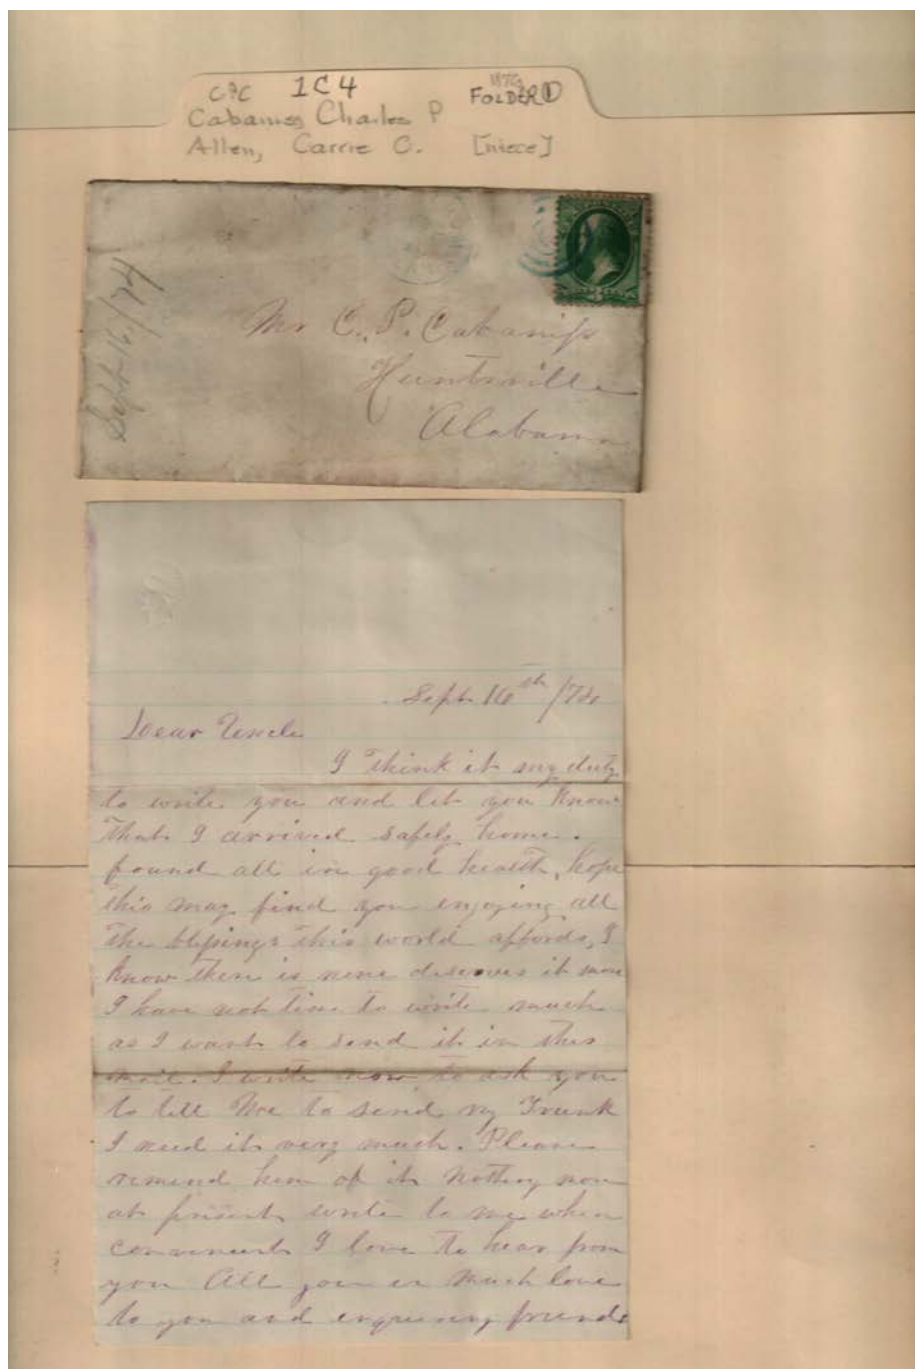 CPC 1C4 FOLDER 1
Cabaniss Charles P
Allen, Carrie O. [niece]
Sept 16/74
Mr C. P. Cabaniss
Huntsville
Alabama
Sept 16th /74
Dear Uncle
I think it my duty
to write you and let you know
that I arrived safely home.
found all in good health, hope
this may find you enjoying all
the blessings this world affords, I
know there is none deserves it more
I have not time to write much
as I want to send it in this
mail. I write now to ask you
to tell to send my Trunk
I need it very much. Please
remind him of it Nothing more
at present write to me when
convenient I love to hear from
you All join in much love
to you and enquiring friends